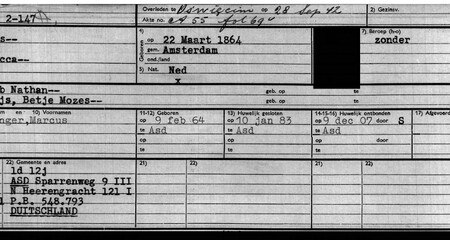 Overleden te Oswiecim op 28 Sep 42 2) Gezinsv.
2-147 Akte no. A 55 fol 69v
s-- 4) op 22 Maart 1864 7) Beroep (h-o)
gem. Amsterdam zonder
cca-- ond./land
5) Nat. Ned
x
b Nathan-- geb. op
js, Betje Mozes-- geb. op
en 10) Voornamen 11-12) Geboren 13) Huwelijk gesloten 14-15-16) Huwelijk ontbonden 17) Afgevoerd
nger,Marcus op 9 feb 64 op 10 jan 83 op 9 dec 07 door S
te Asd te Asd te Asd
op op op door
te te te
22) Gemeente en adres 21) 22) 21) 22)
1d 12j
ASD Sparrenweg 9 III
N Heerengracht 121 I
P.B. 548.793
DUITSCHLAND